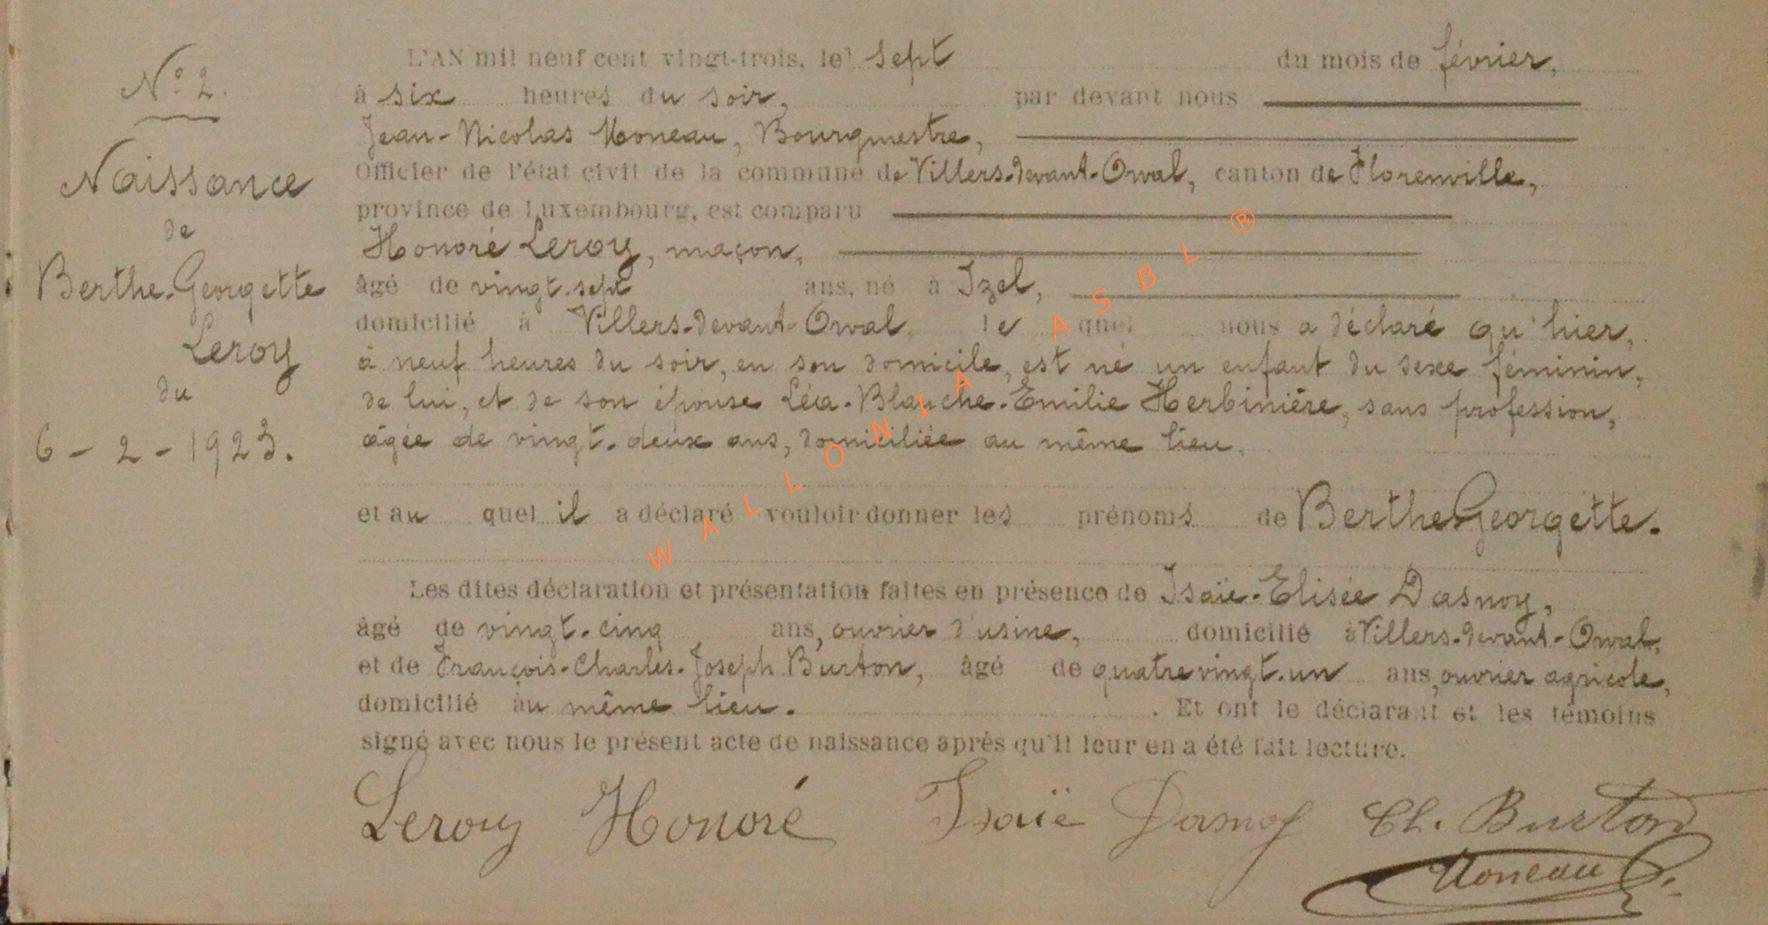 N° 2.
Naissance
de
Berthe-Georgette
Leroy
du
6 - 2 - 1923.
L'AN mil neuf cent vingt-trois, le sept du mois de février,
à six heures du soir, par devant nous
Jean-Nicolas Moneau, Bourgmestre,
Officier de l'état civil de la commune de Villers-devant-Orval, canton de Florenville,
province de Luxembourg, est comparu
Honoré Leroy, maçon,
âgé de vingt-sept ans, né à Izel,
domicilié à Villers-devant-Orval, le quel nous a déclaré qu'hier,
à neuf heures du soir, en son domicile, est né un enfant du sexe féminin,
de lui, et de son épouse Léa-Blanche-Emilie Herbinière, sans profession,
âgée de vingt-deux ans, domiciliée au même lieu.
et au quel il a déclaré vouloir donner les prénoms de Berthe-Georgette.
Les dites déclaration et présentation faites en présence de Isaïe-Elisée Dasnoy,
âgé de vingt-cinq ans, ouvrier d'usine, domicilié à Villers-devant-Orval,
et de François-Charles-Joseph Burton, âgé de quatre vingt-un ans, ouvrier agricole,
domicilié au même lieu. . Et ont le déclarant et les témoins
signé avec nous le présent acte de naissance après qu'il leur en a été fait lecture.
Leroy Honoré Isaïe Dasnoy Ch. Burton
Moneau
WALLONIA ASBL ®